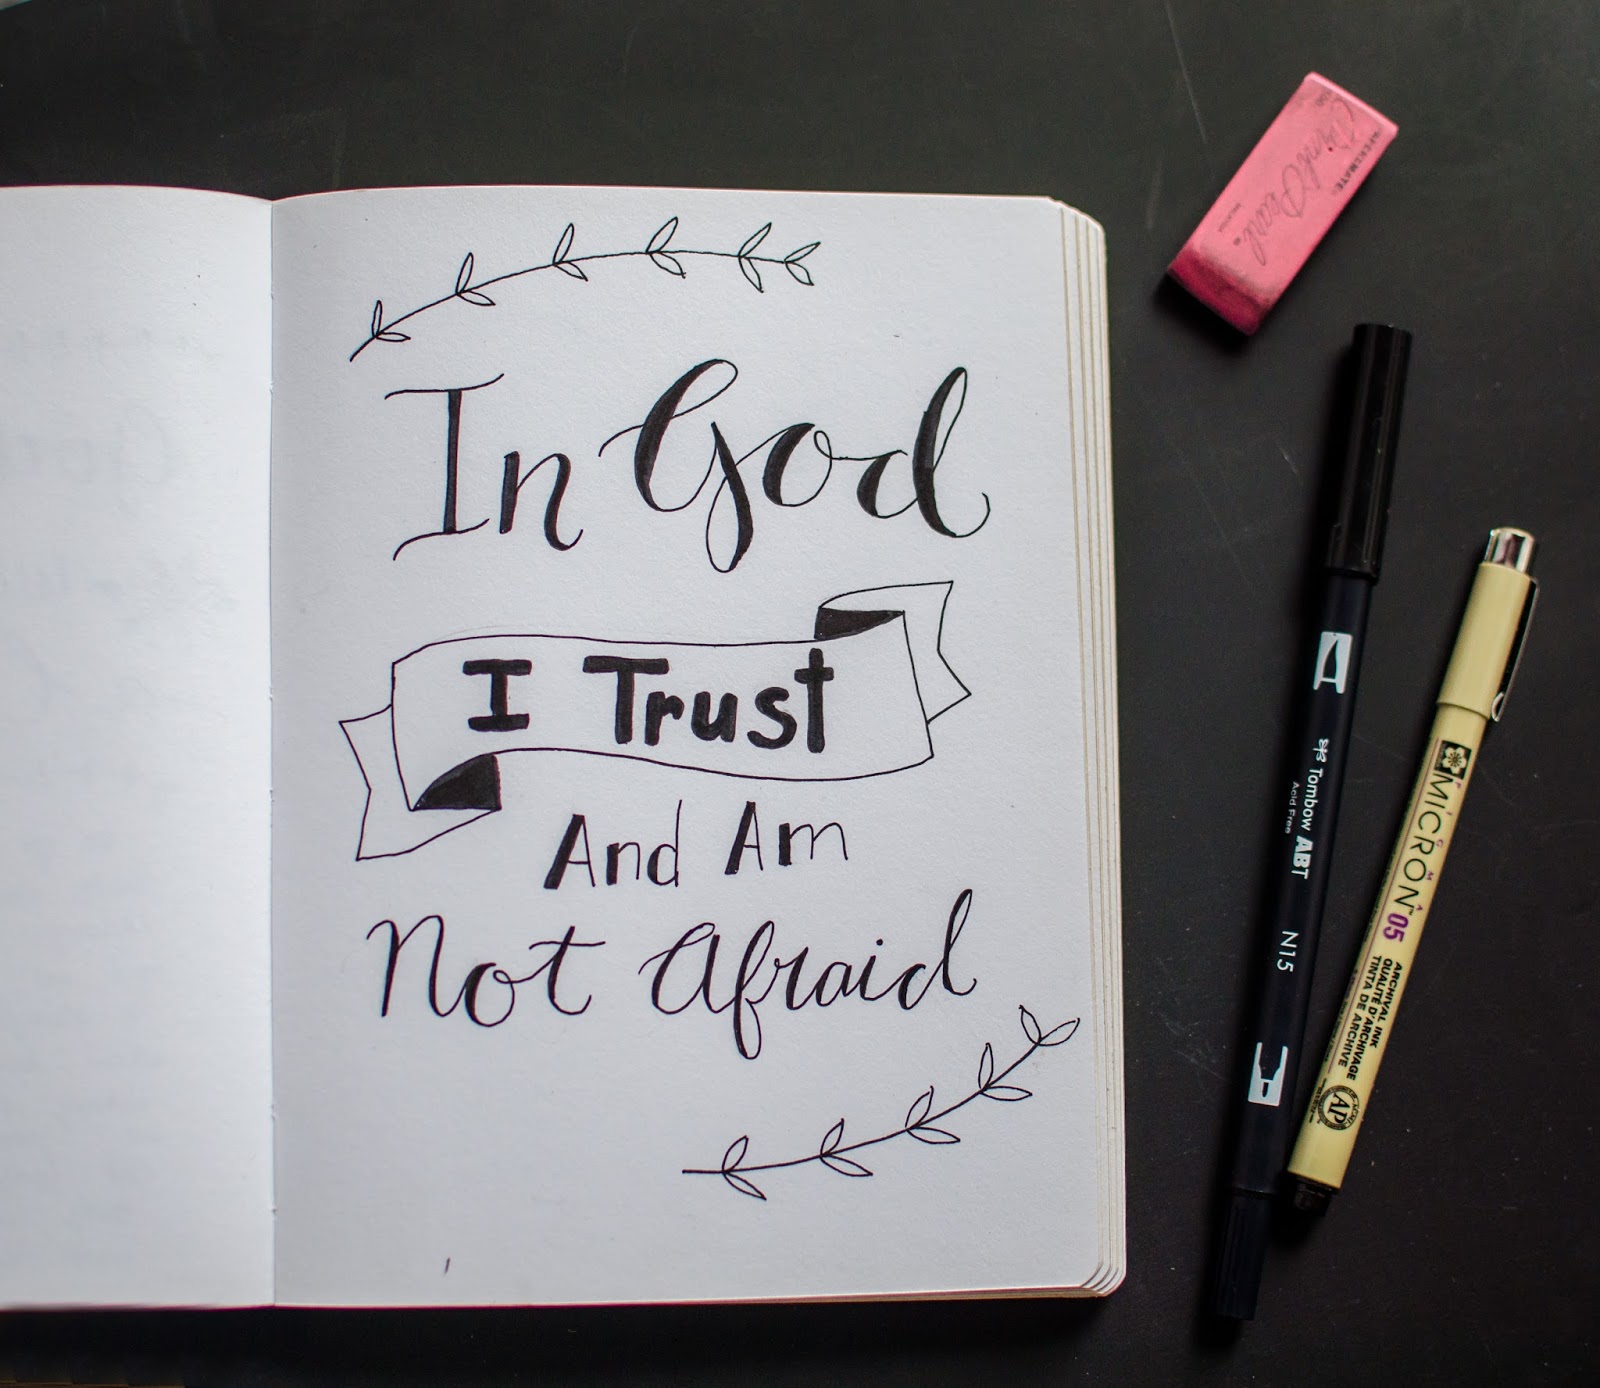 In God
I Trust
And Am
Not Afraid
PAPERMATE
Pink Pearl
Tombow ABT
Acid Free
N15
MICRON 05
ARCHIVAL INK
QUALITÉ D'ARCHIVAGE
TINTA DE ARCHIVE
AP